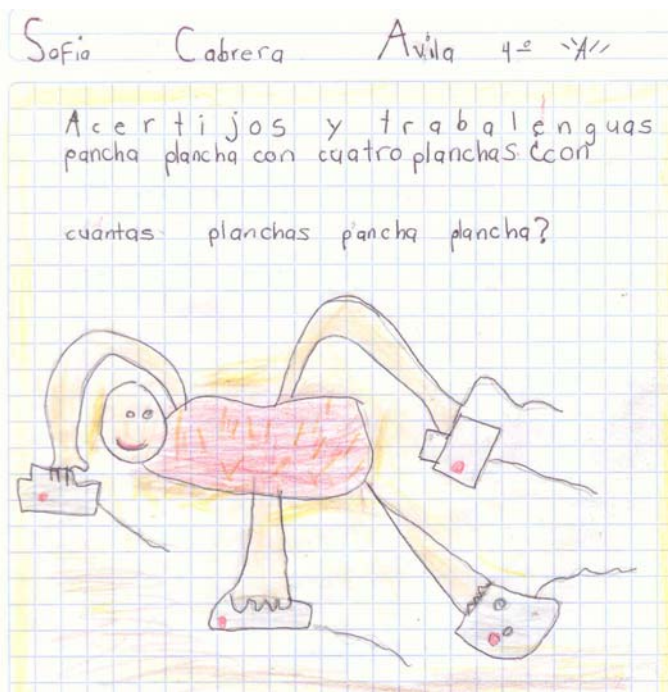 Sofia Cabrera Avila 4º "A"
Acertijos y trabalenguas
pancha plancha con cuatro planchas ¿con
cuántas planchas pancha plancha?